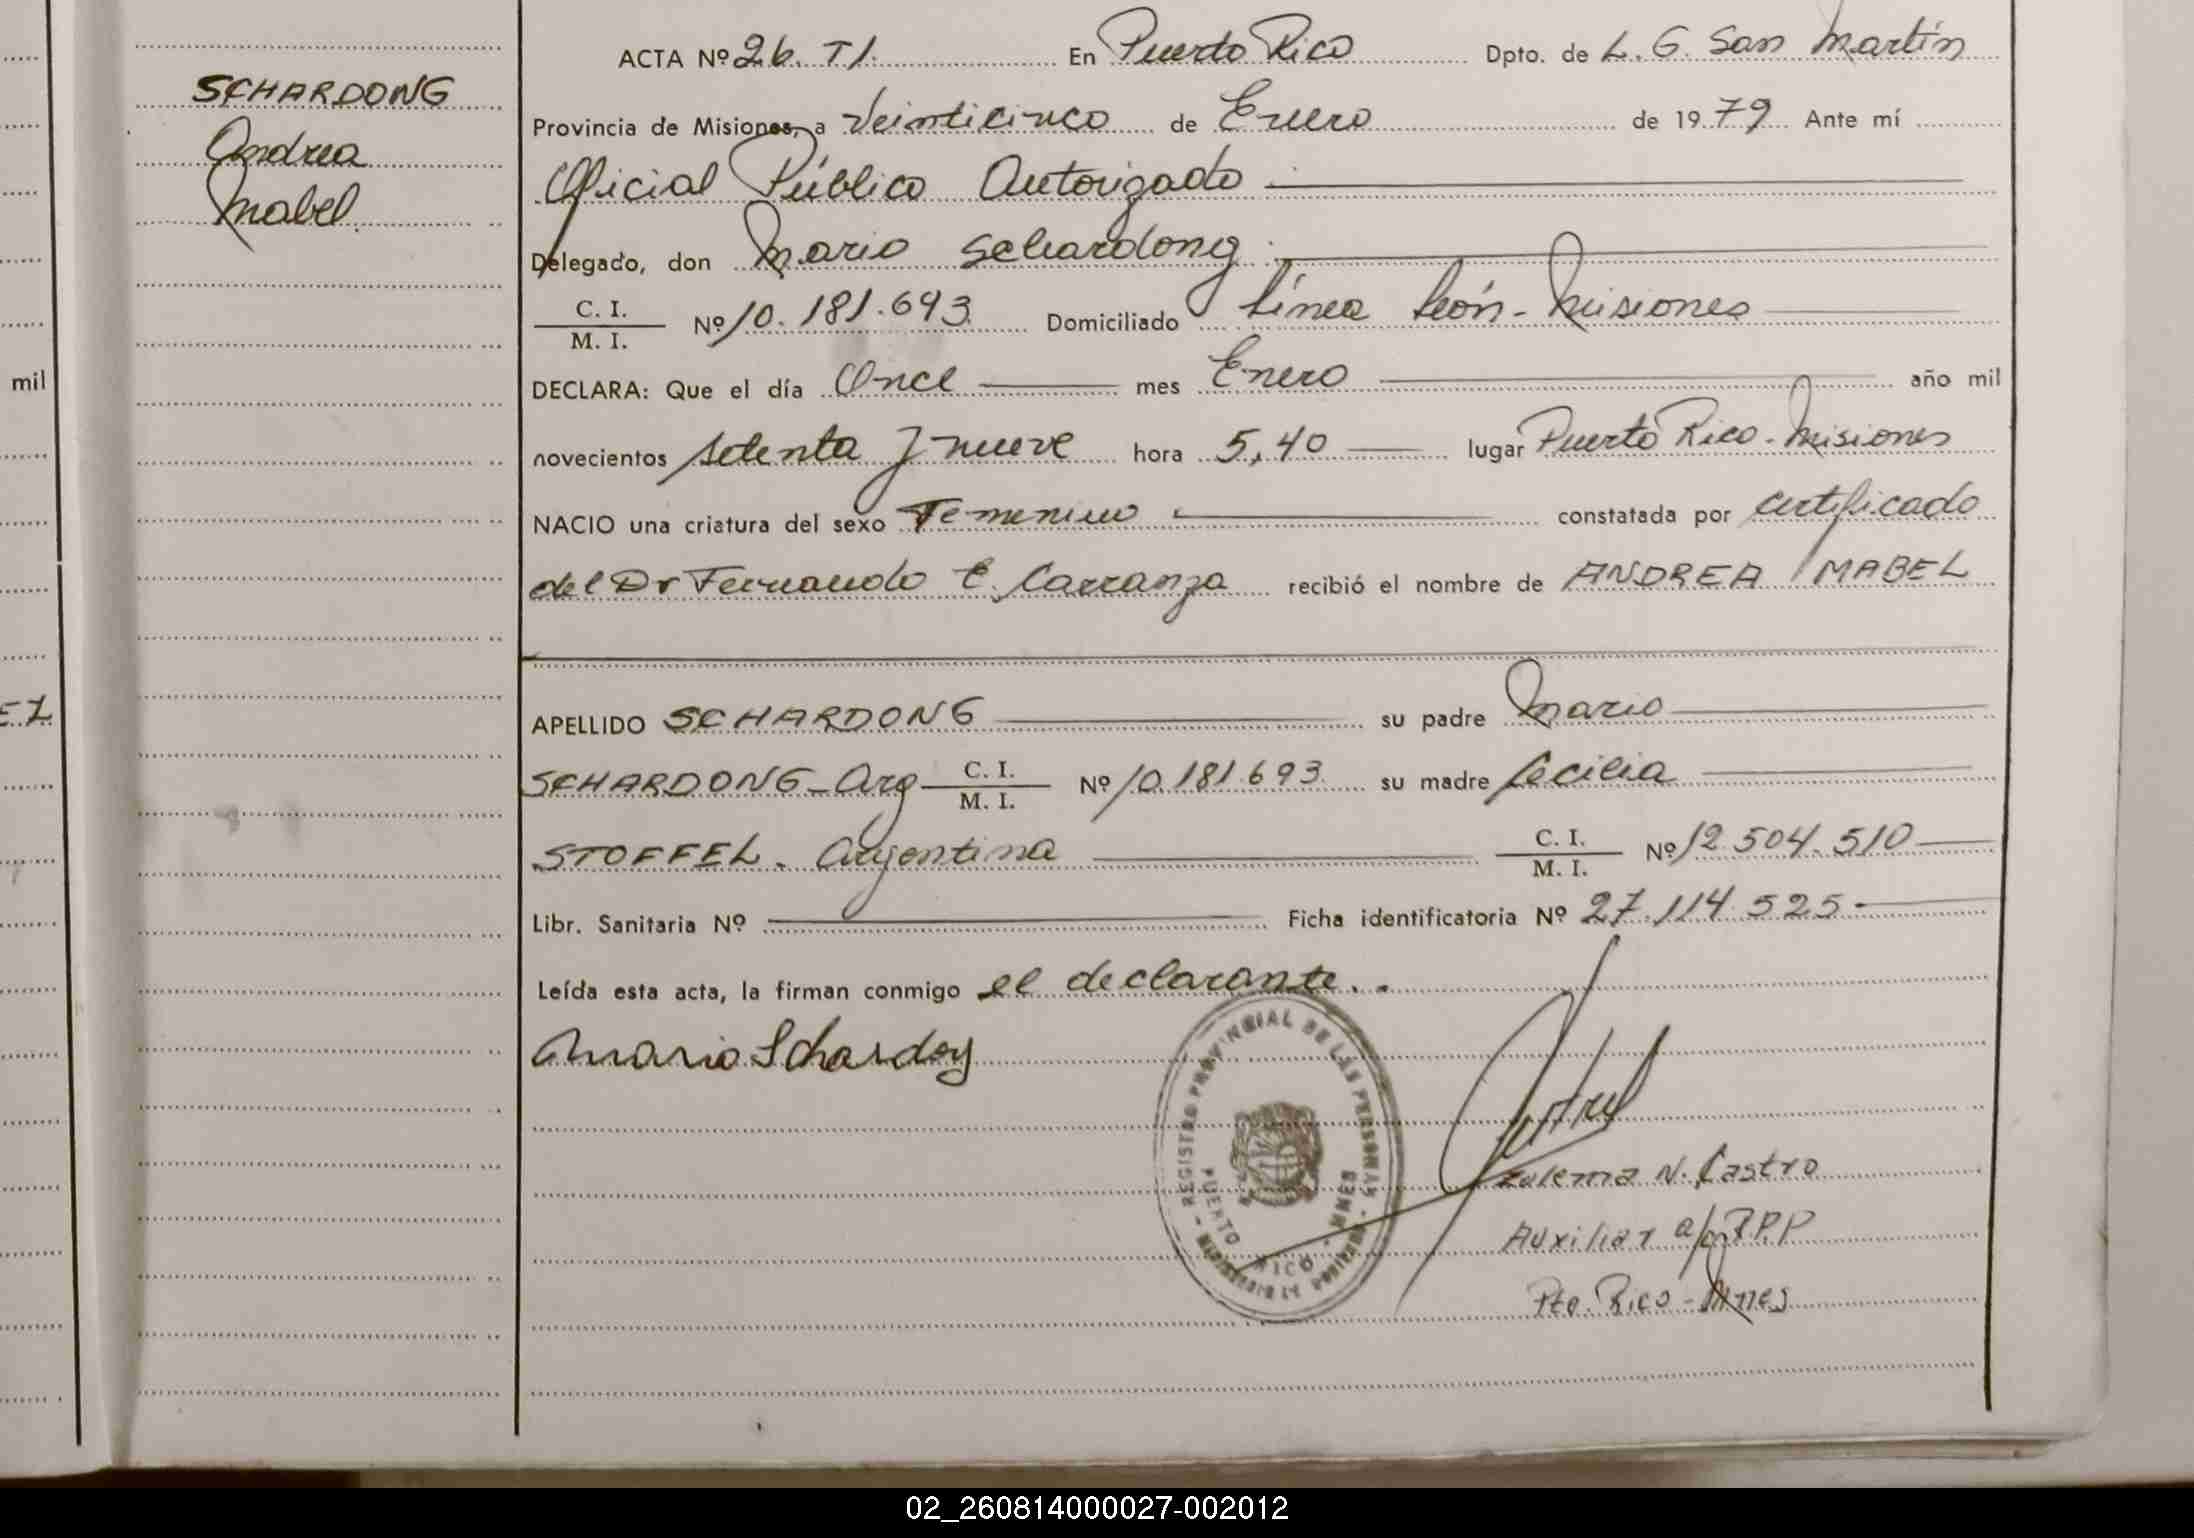 SCHARDONG
Andrea
Mabel
mil
EZ
ACTA Nº 26. T1. En Puerto Rico Dpto. de L. G. San Martín
Provincia de Misiones, a Veinticinco de Enero de 1979 Ante mí
Oficial Público Autorizado
Delegado, don Mario Schardong
C. I.
M. I. Nº 10.181.693 Domiciliado Línea León - Misiones
DECLARA: Que el día Once mes Enero año mil
novecientos setenta y nueve hora 5,40 lugar Puerto Rico - Misiones
NACIO una criatura del sexo Femenino constatada por certificado
del Dr Fernando E. Carranza recibió el nombre de ANDREA MABEL
APELLIDO SCHARDONG su padre Mario
SCHARDONG - Arg C. I.
M. I. Nº 10.181.693 su madre Cecilia
STOFFEL. Argentina C. I.
M. I. Nº 12.504.510
Libr. Sanitaria Nº Ficha identificatoria Nº 27.114.525
Leída esta acta, la firman conmigo el declarante..
Mario Schardong
REGISTRO PROVINCIAL DE LAS PERSONAS
PUERTO RICO - MNES
Zulema N. Castro
Auxiliar a/c R.P.P
Pto. Rico - Mnes
02_260814000027-002012